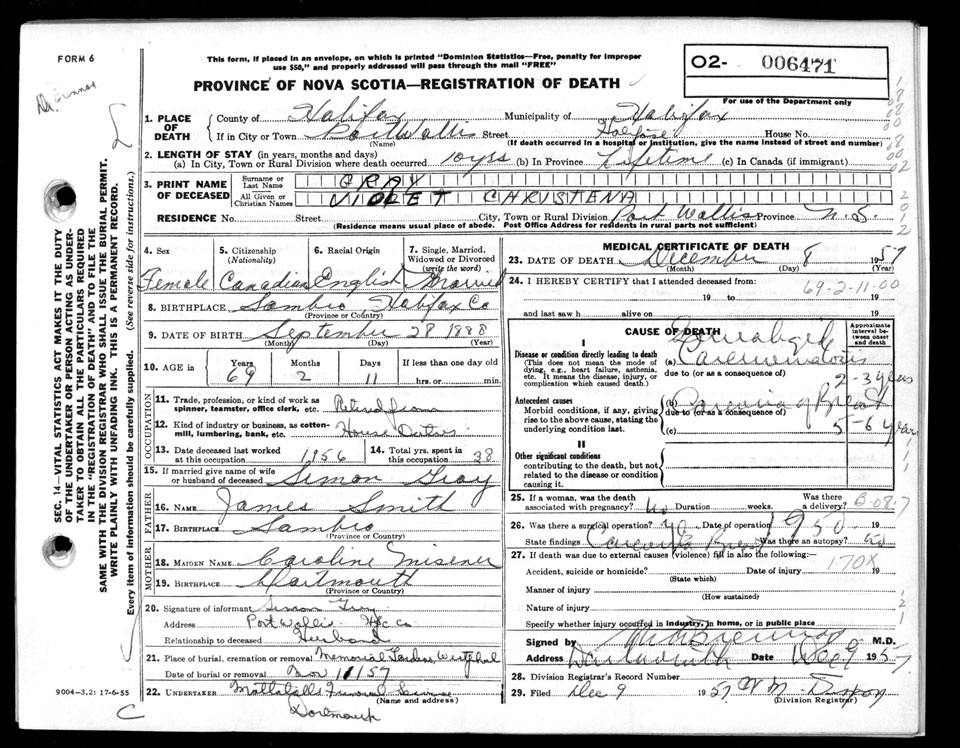 FORM 6
This form, if placed in an envelope, on which is printed "Dominion Statistics—Free, penalty for improper
use $50," and properly addressed will pass through the mail "FREE"
PROVINCE OF NOVA SCOTIA—REGISTRATION OF DEATH
02- 006471
For use of the Department only
1. PLACE OF DEATH
County of Halifax Municipality of Halifax
If in City or Town Port Wallis Street House No.
(Name) (If death occurred in a hospital or institution, give the name instead of street and number)
2. LENGTH OF STAY (in years, months and days)
(a) In City, Town or Rural Division where death occurred 10 yrs (b) In Province Lifetime (c) In Canada (if immigrant)
3. PRINT NAME OF DECEASED
Surname or Last Name GRAY
All Given or Christian Names VIOLET CHRISTENA
RESIDENCE No. Street City, Town or Rural Division Port Wallis Province N.S.
(Residence means usual place of abode. Post Office Address for residents in rural parts not sufficient)
4. Sex 5. Citizenship (Nationality) 6. Racial Origin 7. Single, Married, Widowed or Divorced (write the word)
Female Canadian English Married
8. BIRTHPLACE Sambro Halifax Co
(Province or Country)
9. DATE OF BIRTH September 28 1888
(Month) (Day) (Year)
10. AGE Years Months Days If less than one day old
69 2 11 hrs. or min.
OCCUPATION
11. Trade, profession, or kind of work as spinner, teamster, office clerk, etc. Retired from
12. Kind of industry or business, as cotton-mill, lumbering, bank, etc. House Duties
13. Date deceased last worked at this occupation 1956 14. Total yrs. spent in this occupation 38
15. If married give name of wife or husband of deceased Simon Gray
FATHER
16. NAME James Smith
17. BIRTHPLACE Sambro
(Province or Country)
MOTHER
18. MAIDEN NAME Caroline Misener
19. BIRTHPLACE Dartmouth
(Province or Country)
20. Signature of informant Simon Gray
Address Port Wallis Hfx Co
Relationship to deceased Husband
21. Place of burial, cremation or removal Memorial Gardens, Westphal
Date of burial or removal 11 1957
22. UNDERTAKER Funeral Service
(Name and address)
MEDICAL CERTIFICATE OF DEATH
23. DATE OF DEATH December 8 1957
(Month) (Day) (Year)
24. I HEREBY CERTIFY that I attended deceased from:
69-2-11-00
19 to 19
and last saw h alive on 19
CAUSE OF DEATH
Approximate interval between onset and death
I
Disease or condition directly leading to death
(This does not mean the mode of dying, e.g., heart failure, asthenia, etc. It means the disease, injury, or complication which caused death.)
(a)
due to (or as a consequence of)
2-3 years
Antecedent causes
Morbid conditions, if any, giving rise to the above cause, stating the underlying condition last.
(b) of Breast
due to (or as a consequence of)
(c) 5-6 years
II
Other significant conditions
contributing to the death, but not related to the disease or condition causing it.
25. If a woman, was the death associated with pregnancy? No Duration weeks. Was there a delivery?
B-08-7
26. Was there a surgical operation? Date of operation 1950 19
State findings Was there an autopsy? no
27. If death was due to external causes (violence) fill in also the following:—
170X
Accident, suicide or homicide? Date of injury 19
(State which)
Manner of injury
(How sustained)
Nature of injury
Specify whether injury occurred in industry, in home, or in public place
Signed by M.D.
Address Dartmouth Date Dec 9 1957
28. Division Registrar's Record Number
29. Filed Dec 9 1957
(Division Registrar)
SEC. 14—VITAL STATISTICS ACT MAKES IT THE DUTY
OF THE UNDERTAKER OR PERSON ACTING AS UNDER-
TAKER TO OBTAIN ALL THE PARTICULARS REQUIRED
IN THE "REGISTRATION OF DEATH" AND TO FILE THE
SAME WITH THE DIVISION REGISTRAR WHO SHALL ISSUE THE BURIAL PERMIT.
WRITE PLAINLY WITH UNFADING INK. THIS IS A PERMANENT RECORD.
Every item of information should be carefully supplied. (See reverse side for instructions.)
9004—3.2: 17-6-55